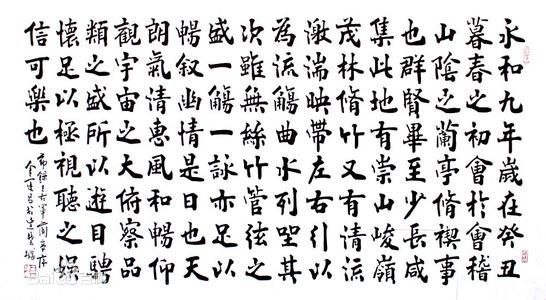 永和九年歲在癸丑
暮春之初會於會稽
山陰之蘭亭脩禊事
也群賢畢至少長咸
集此地有崇山峻嶺
茂林脩竹又有清流
激湍映帶左右引以
為流觴曲水列坐其
次雖無絲竹管弦之
盛一觴一詠亦足以
暢叙幽情是日也天
朗氣清惠風和暢仰
觀宇宙之大俯察品
類之盛所以遊目騁
懷足以極視聽之娛
信可樂也
節錄王右軍蘭亭序